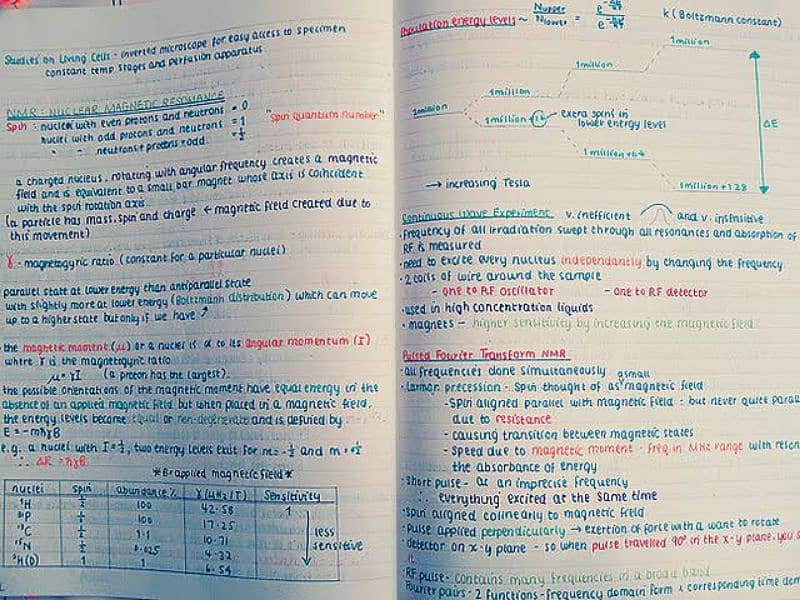 Studies on Living Cells - inverted microscope for easy access to specimen
constant temp stages and perfusion apparatus
NMR: NUCLEAR MAGNETIC RESONANCE
Spin: nuclei with even protons and neutrons = 0
nuclei with odd protons and neutrons = 1
" " neutrons + protons = odd = ½
"Spin quantum number"
a charged nucleus, rotating with angular frequency creates a magnetic
field and is equivalent to a small bar magnet whose axis is coincident
with the spin rotation axis
(a particle has mass, spin and charge ← magnetic field created due to
this movement)
γ - magnetogyric ratio (constant for a particular nuclei)
parallel state at lower energy than antiparallel state
with slightly more at lower energy (Boltzmann distribution) which can move
up to a higher state but only if we have ↗
the magnetic moment (μ) of a nuclei is α to its angular momentum (I)
where γ is the magnetogyric ratio
μ = γI (a proton has the largest).
the possible orientations of the magnetic moment have equal energy in the
absence of an applied magnetic field but when placed in a magnetic field,
the energy levels become equal or non-degenerate and is defined by
E = -mħγB
e.g. a nuclei with I = ½, two energy levels exist for m = -½ and m = +½
∴ ΔE = ħγB
*B = applied magnetic field*
nuclei spin abundance % γ (MHz/T) Sensitivity
¹H ½ 100 42.58 1
³¹P ½ 100 17.25
¹³C ½ 1.1 10.71
¹⁵N ½ 4.32
²H(D) 1 1 6.54
less
sensitive
Population energy levels ~ Nupper / Nlower =
k (Boltzmann constant)
1 million
1 million
1 million
2 million
1 million + 16
extra spins in
lower energy level
ΔE
1 million + 64
1 million + 128
→ increasing Tesla
Continuous Wave Experiment v. inefficient and v. insensitive
· frequency of all irradiation swept through all resonances and absorption of
RF is measured
· need to excite every nucleus independantly by changing the frequency.
· 2 coils of wire around the sample
- one to RF oscillator - one to RF detector
· used in high concentration liquids
· magnets - higher sensitivity by increasing the magnetic field
Pulsed Fourier Transform NMR
· all frequencies done simultaneously
· larmor precession - Spin thought of as small magnetic field
- Spin aligned parallel with magnetic field : but never quite
due to resistance
- causing transition between magnetic states
- speed due to magnetic moment - freq in MHz range with
the absorbance of energy
· Short pulse - at an imprecise frequency
∴ everything excited at the same time
· spin aligned colinearly to magnetic field
· pulse applied perpendicularly → exertion of force with a want to rotate
· detector on x-y plane - so when pulse travelled 90° in the x-y plane, you
it
· RF pulse - contains many frequencies in a broad band
Fourier pairs - 2 functions - frequency domain form & corresponding time